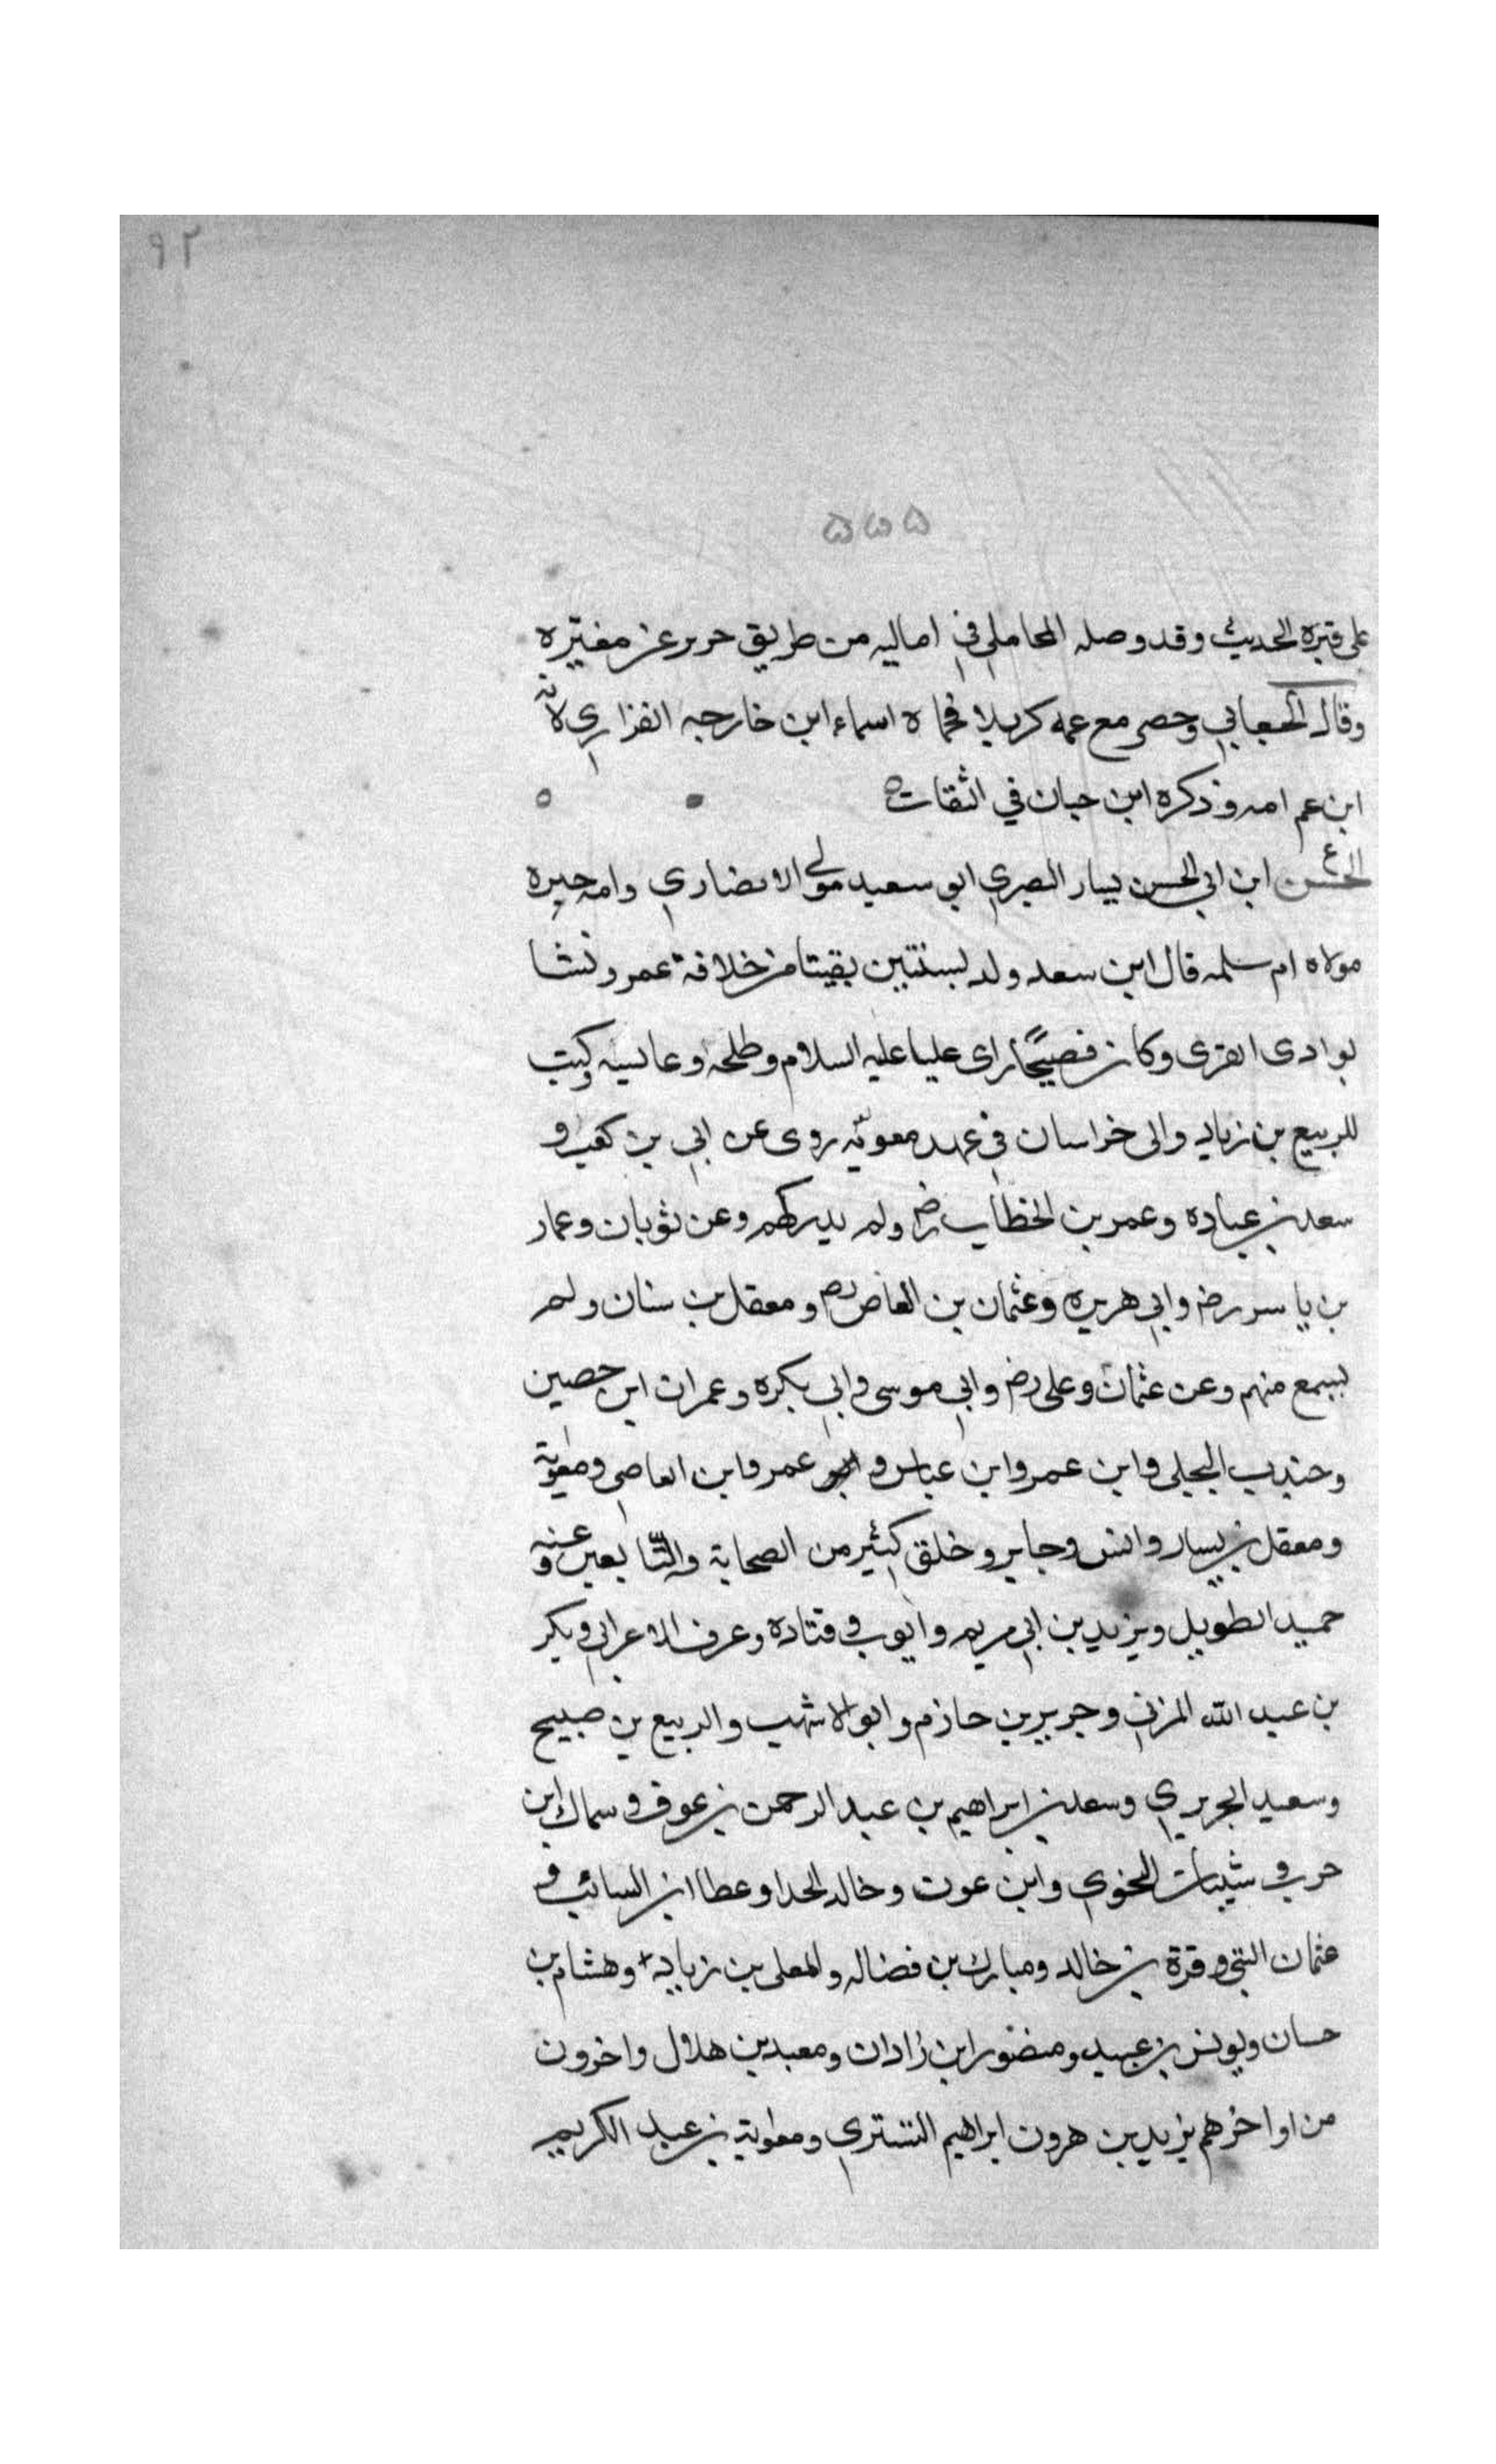 ٩٢
۵۵۵
على قبره الحديث وقد وصله المحاملي في اماليه من طريق جرير عن مغيره
وقال الجعابي وحضر مع عمه كربلا فحماه اسماء ابن خارجه الفزاري لانه
ابن عم امه وذكره ابن حبان في الثقات
ع
الحسن ابن ابي الحسن يسار البصري ابو سعيد مولى الانصاري وامه خيره
مولاه ام سلمه قال ابن سعد ولد لسنتين بقيتا من خلافة عمر ونشا
بوادى القرى وكان فصيحًا راى عليا عليه السلام وطلحه وعايشه وكتب
للربيع بن زياد والى خراسان في عهد معويه روى عن ابي بن كعب و
سعد بن عباده وعمر بن الخطاب رض ولم يدركهم وعن ثوبان وعمار
بن ياسر رض وابي هريره وعثمان بن العاص رض ومعقل بن سنان ولم
يسمع منهم وعن عثمان وعلى رض وابي موسى وابي بكره وعمران ابن حصين
وجندب البجلى وابن عمر وابن عباس و عمرو ابن العاصى ومعوية
ومعقل بن يسار وانس وجابر وخلق كثير من الصحابة والتّابعين وعنه
حميد الطويل ويزيد بن ابي مريم وايوب وقتادة وعوف الاعرابي وبكر
بن عبد الله المزني وجرير بن حازم وابو الاشهب والربيع بن صبيح
وسعيد الجريري وسعد بن ابراهيم بن عبد الرحمن بن عوف وسماك ابن
حرب وشيبان النحوي وابن عون وخالد الحدا وعطا ابن السائب و
عثمان البتي وقرة بن خالد ومبارك بن فضاله والمعلى بن زياد وهشام بن
حسان ويونس بن عبيد ومنصور ابن زادان ومعبد بن هلال واخرون
من اواخرهم يزيد بن هرون ابراهيم التستري ومعوية بن عبد الكريم